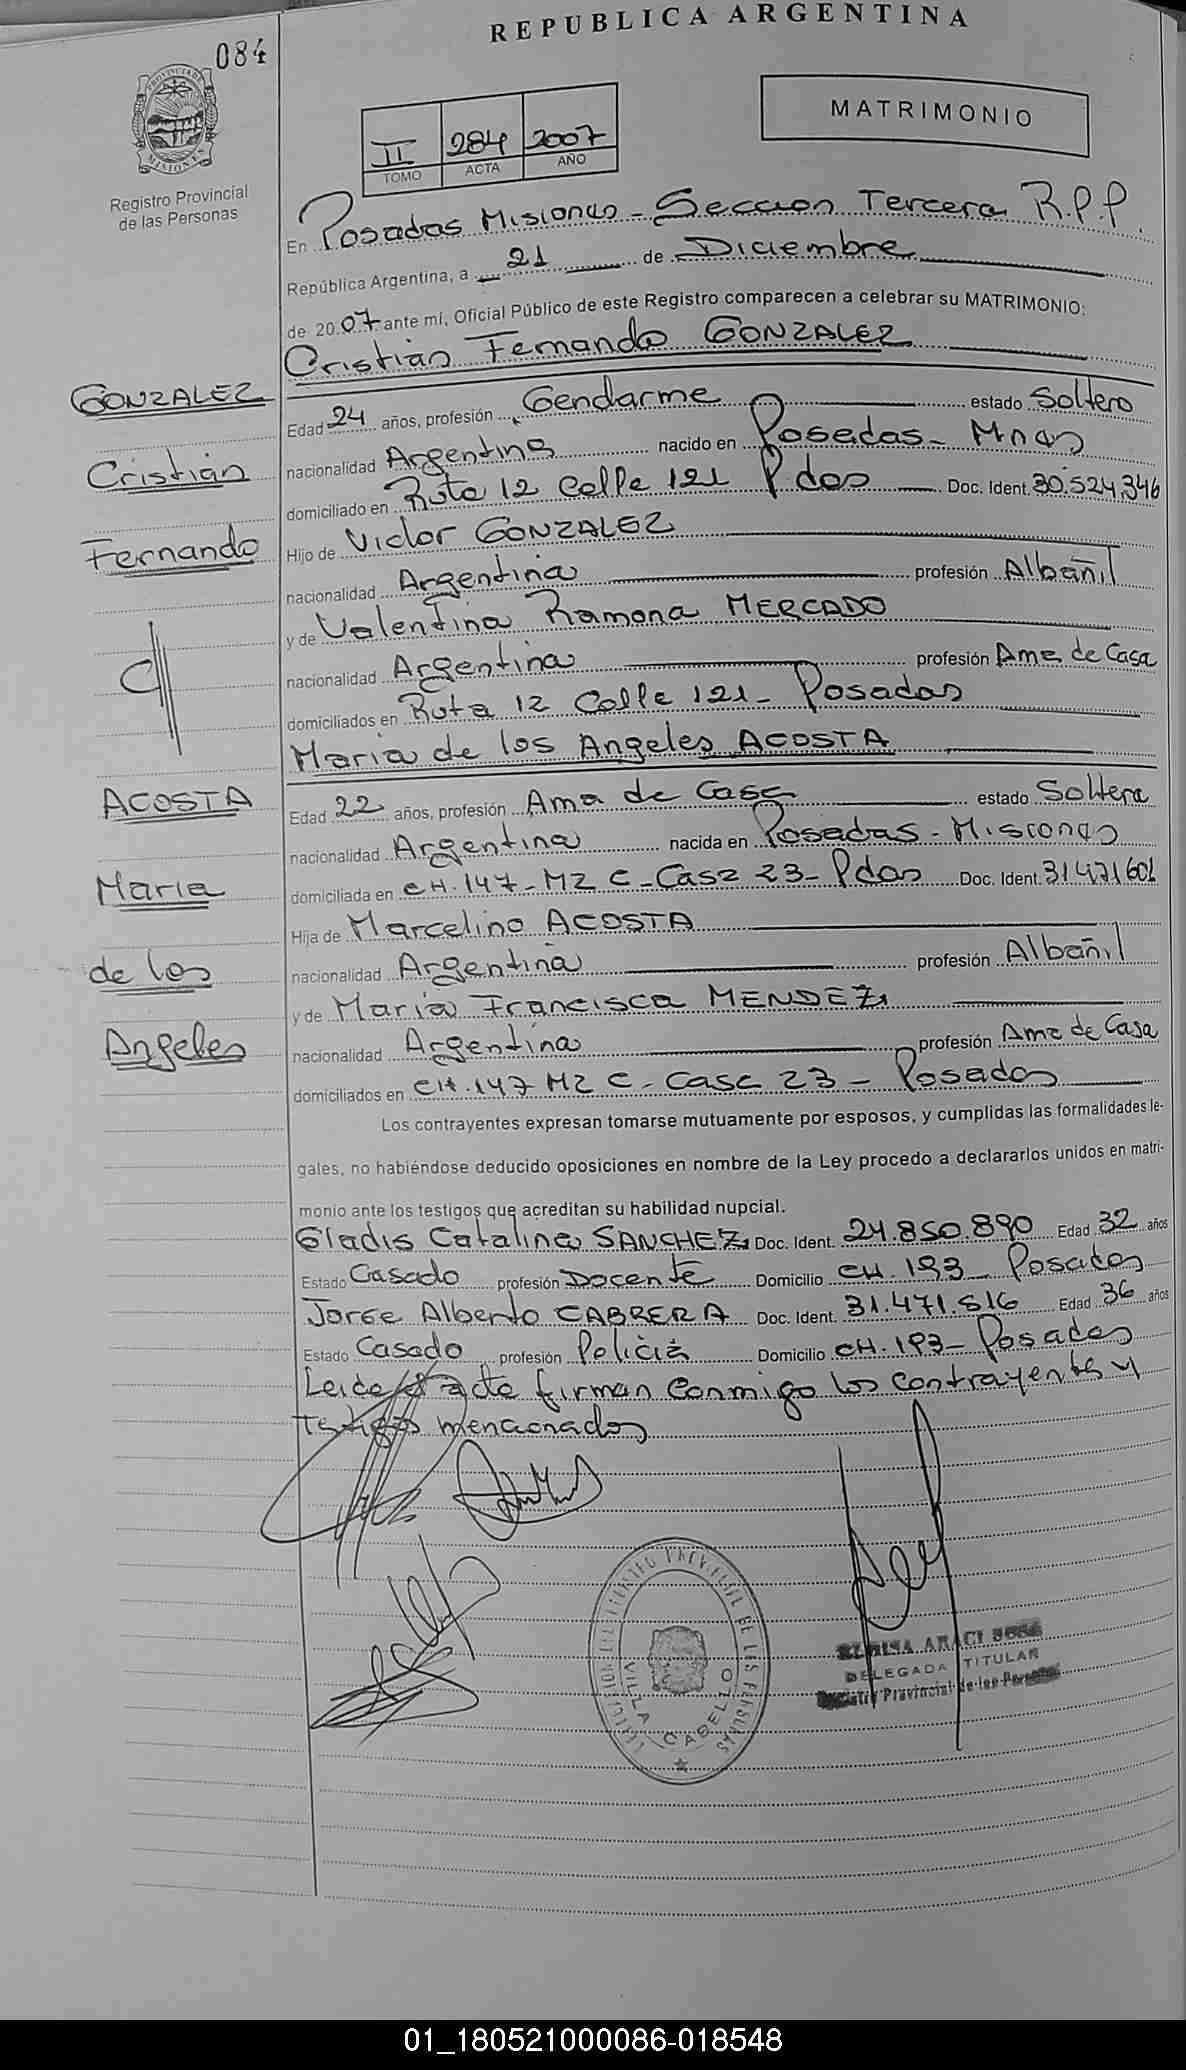 REPUBLICA ARGENTINA
084
MATRIMONIO
II 284 2007
TOMO ACTA AÑO
PROVINCIA DE MISIONES
Registro Provincial
de las Personas
En Posadas Misiones - Seccion Tercera R.P.P.
República Argentina, a 21 de Diciembre
de 2007 ante mí, Oficial Público de este Registro comparecen a celebrar su MATRIMONIO:
Cristián Fernando GONZALEZ
GONZALEZ
Cristián
Fernando
y
Edad 24 años, profesión Gendarme estado Soltero
nacionalidad Argentina nacido en Posadas - Mnes
domiciliado en Ruta 12 Calle 121 Pdas Doc. Ident. 30.524.346
Hijo de Victor GONZALEZ
nacionalidad Argentina profesión Albañil
y de Valentina Ramona MERCADO
nacionalidad Argentina profesión Ama de Casa
domiciliados en Ruta 12 Calle 121 - Posadas
Maria de los Angeles ACOSTA
ACOSTA
Maria
de los
Angeles
Edad 22 años, profesión Ama de Casa estado Soltera
nacionalidad Argentina nacida en Posadas - Misiones
domiciliada en CH. 147 - MZ C - Casa 23 - Pdas Doc. Ident. 31471601
Hija de Marcelino ACOSTA
nacionalidad Argentina profesión Albañil
y de Maria Francisca MENDEZ
nacionalidad Argentina profesión Ama de Casa
domiciliados en CH. 147 MZ C - Casa 23 - Posadas
Los contrayentes expresan tomarse mutuamente por esposos, y cumplidas las formalidades le-
gales, no habiéndose deducido oposiciones en nombre de la Ley procedo a declararlos unidos en matri-
monio ante los testigos que acreditan su habilidad nupcial.
Gladis Catalina SANCHEZ Doc. Ident. 24.850.890 Edad 32 años
Estado Casado profesión Docente Domicilio CH. 193 - Posadas
Jorge Alberto CABRERA Doc. Ident. 31.471.516 Edad 36 años
Estado Casado profesión Policia Domicilio CH. 193 - Posadas
Leida el acta firman conmigo los contrayentes y
testigos mencionados
VILLA CABELLO
DELEGADA TITULAR
Registro Provincial de las Personas
01_180521000086-018548